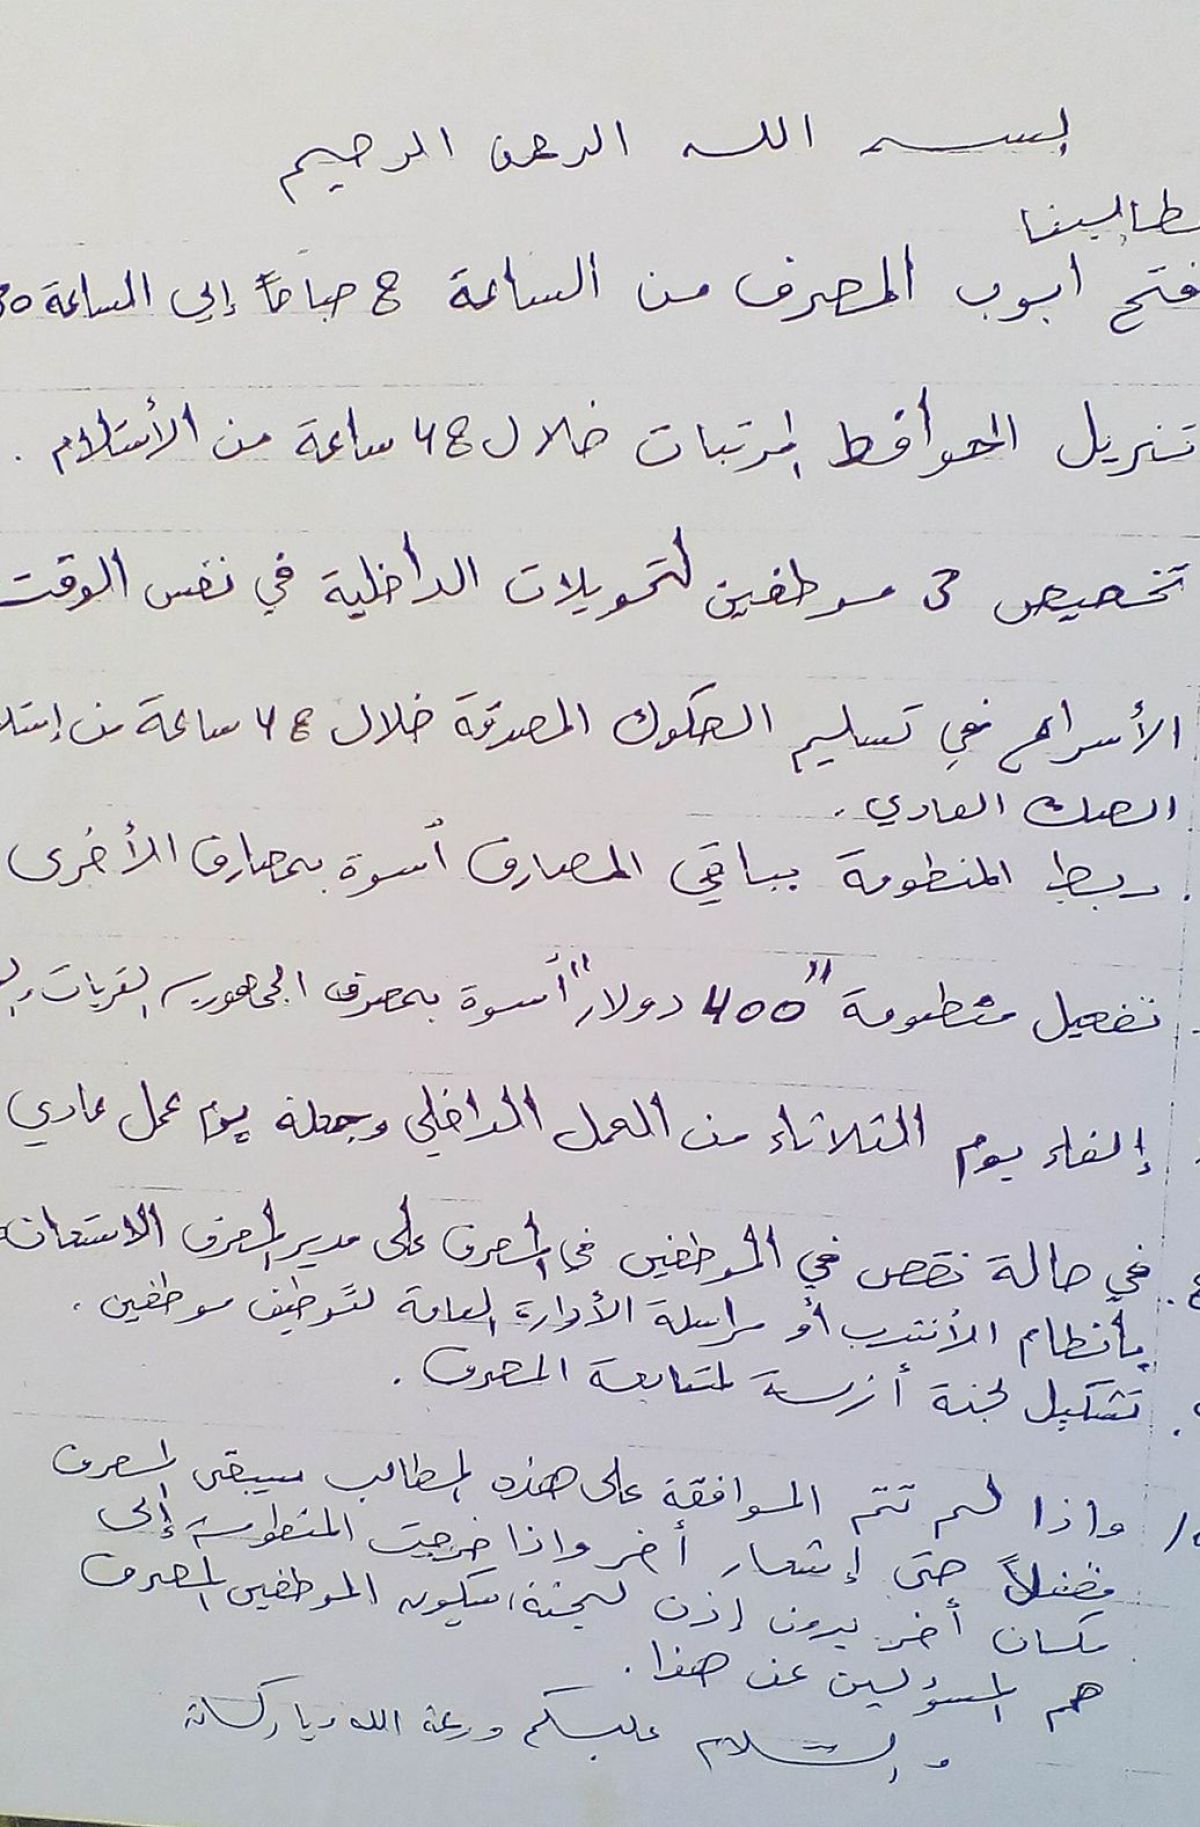 بسم الله الرحمن الرحيم
مطالبنا
فتح ابوب المصرف من الساعة 8 صباحاً إلي الساعة
تنزيل الحوافظ المرتبات خلال 48 ساعة من الأستلام .
تخصيص 3 موظفين لتحويلات الداخلية في نفس الوقت
الأسراع في تسليم الصكوك المصدقة خلال 48 ساعة من إستلا
الصك العادي .
. ربط المنظومة بباقي المصارف أسوة بمصارف الأخرى
. تفعيل منظومة "400 دولار" أسوة بمصرف الجمهورية القريات
. إلغاء يوم الثلاثاء من العمل الداخلي وجعله يوم عمل عادي
. في حالة نقص في الموظفين في المصرف على مدير المصرف الاستعانه
بأنظام الأنتدب أو مراسلة الأدارة العامة لتوظيف موظفين .
. تشكيل لجنة أزمة لمتابعة المصرف .
/ واذا لم تتم الموافقة على هذه المطالب سيبقى المصرف
مقفلاً حتى إشعار أخر واذا خرجت المنظومة إلى
مكان أخر بدون إذن لجنة، سيكون الموظفين المصرف
هم المسؤلين عن هذا .
والسلام عليكم ورحمة الله وباركاته